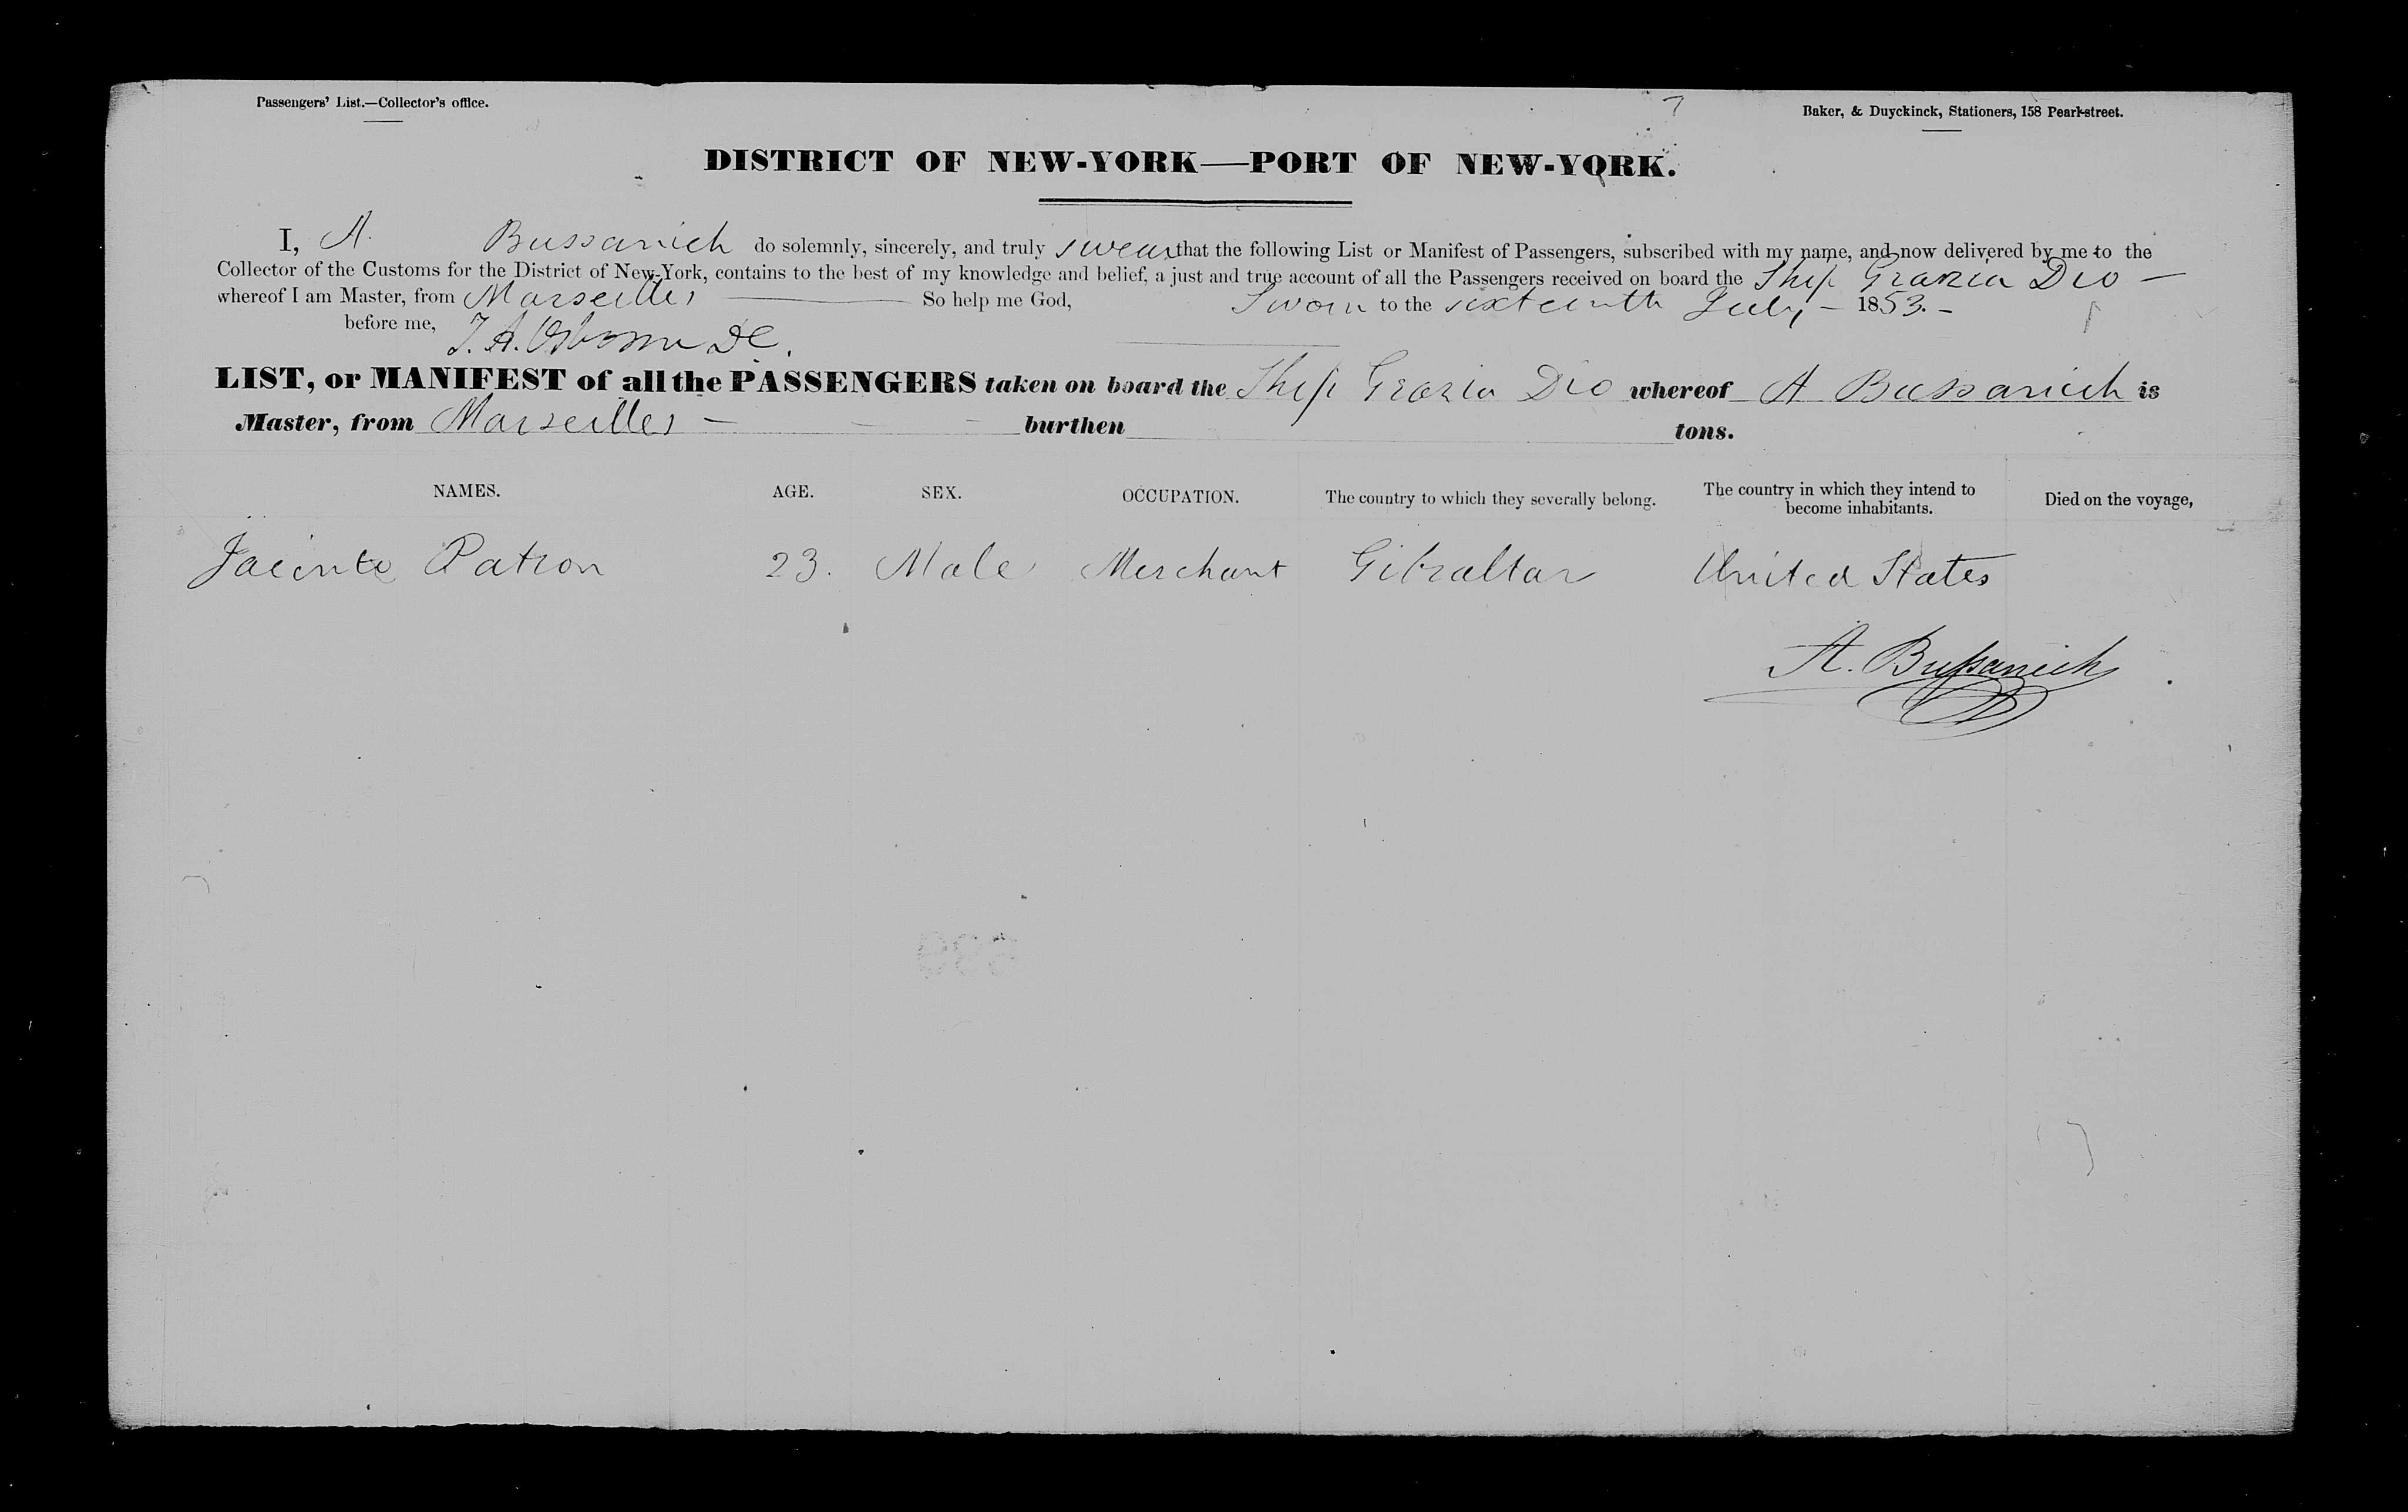 Passengers' List.—Collector's office.
Baker, & Duyckinck, Stationers, 158 Pearl-street.
DISTRICT OF NEW-YORK—PORT OF NEW-YORK.
I, A. Bussanich do solemnly, sincerely, and truly swear that the following List or Manifest of Passengers, subscribed with my name, and now delivered by me to the
Collector of the Customs for the District of New-York, contains to the best of my knowledge and belief, a just and true account of all the Passengers received on board the Ship Grazia Dio —
whereof I am Master, from Marseilles — So help me God, Sworn to the sixteenth July — 1853. –
before me, J. A. Osborne DC.
LIST, or MANIFEST of all the PASSENGERS taken on board the Ship Grazia Dio whereof A Bussanich is
Master, from Marseilles — burthen tons.
NAMES. AGE. SEX. OCCUPATION. The country to which they severally belong. The country in which they intend to become inhabitants. Died on the voyage,
Jacinte Patron 23. Male Merchant Gibraltar United States
A. Bussanich